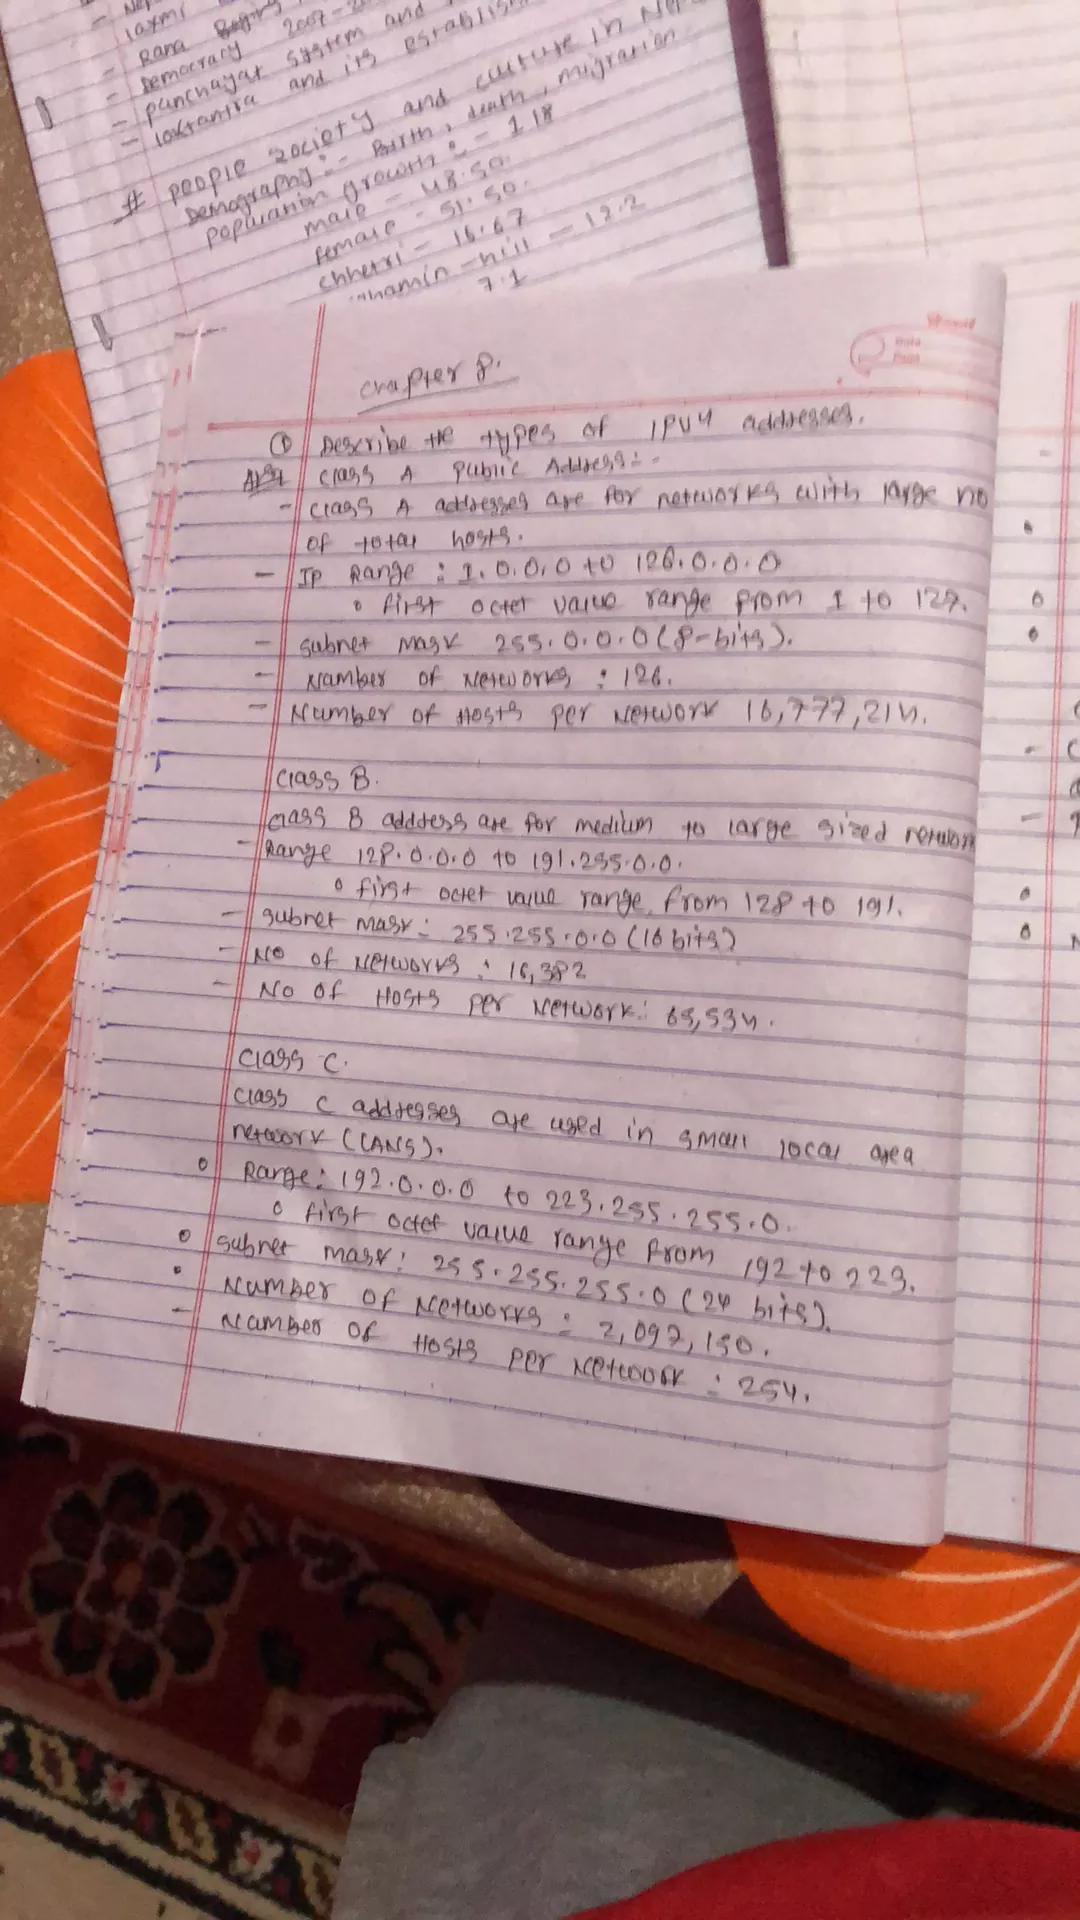 laxmi
- Rana
- Democracy 2007-
- panchayat system and
- loktantra and its establish
# people society and culture in Nep
Demography:- Birth, death, migration
population growth:- 1.18
male - 48.50.
female - 51.50.
chhetri - 16.67
hamin - hill - 12.2
7.1
chapter 8.
① Describe the types of IPV4 addresses.
Ans: class A Public Address:-
- class A addresses are for networks with large no
of total hosts.
- IP Range : 1.0.0.0 to 126.0.0.0
o first octet value range from 1 to 127.
- subnet mask 255.0.0.0 (8-bits).
- Number of Networks : 126.
- Number of Hosts per Network 16,777,214.
class B.
class B address are for medium to large sized network
- Range 128.0.0.0 to 191.255.0.0.
o first octet value range from 128 to 191.
- subnet mask: 255.255.0.0 (16 bits)
- No of Networks : 16,382
- No of Hosts per Network: 65,534.
class C.
class C addresses are used in small local area
network (LANS).
o Range: 192.0.0.0 to 223.255.255.0.
o first octet value range from 192 to 223.
o subnet mask: 255.255.255.0 (24 bits).
• Number of Networks : 2,097,150.
- Number of Hosts per Network : 254.